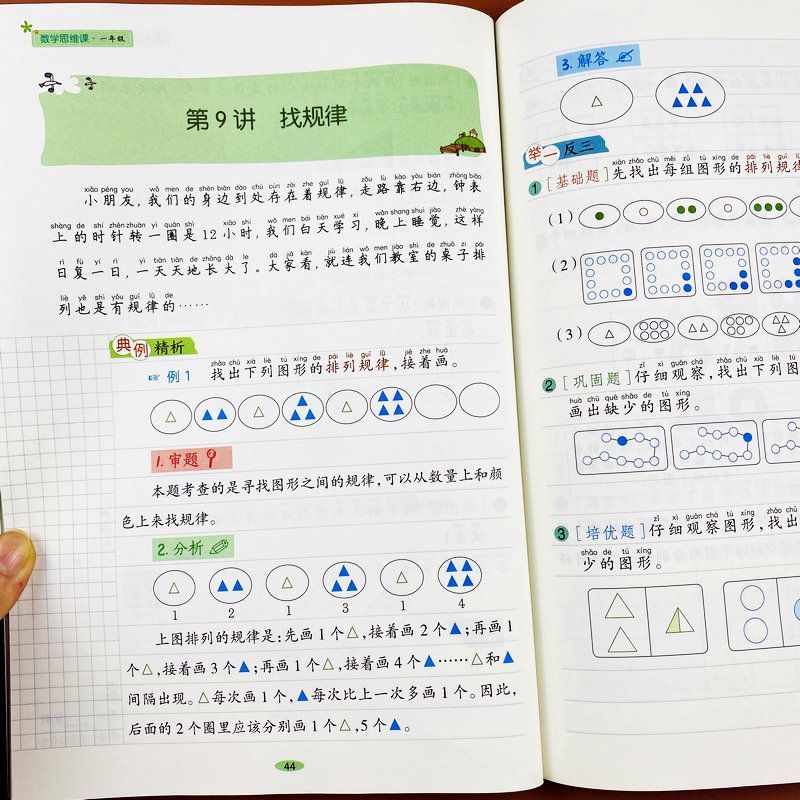 数学思维课·一年级
第9讲 找规律
xiǎo péng you wǒ men de shēn biān dào chù cún zài zhe guī lǜ zǒu lù kào yòu biān zhōng biǎo
小朋友,我们的身边到处存在着规律,走路靠右边,钟表
shàng de shí zhēn zhuàn yì quān shì xiǎo shí wǒ men bái tiān xué xí wǎn shang shuì jiào zhè yàng
上的时针转一圈是12小时,我们白天学习,晚上睡觉,这样
rì fù yí rì yì tiān tiān de zhǎng dà le dà jiā kàn jiù lián wǒ men jiào shì de zhuō zi pái
日复一日,一天天地长大了。大家看,就连我们教室的桌子排
liè yě shì yǒu guī lǜ de
列也是有规律的……
典例精析
zhǎo chū xià liè tú xíng de pái liè guī lǜ jiē zhe huà
例1 找出下列图形的排列规律,接着画。
1.审题
本题考查的是寻找图形之间的规律,可以从数量上和颜
色上来找规律。
2.分析
1 2 1 3 1 4
上图排列的规律是:先画1个△,接着画2个▲;再画1
个△,接着画3个▲;再画1个△,接着画4个▲……△和▲
间隔出现。△每次画1个,▲每次比上一次多画1个。因此,
后面的2个圈里应该分别画1个△,5个▲。
44
3.解答
举一反三
xiān zhǎo chū měi zǔ tú xíng de pái liè guī lǜ
1 [基础题]先找出每组图形的排列规律
(1)
(2)
(3)
zǐ xì guān chá zhǎo chū xià liè tú
2 [巩固题]仔细观察,找出下列图
huà chū quē shǎo de tú xíng
画出缺少的图形。
zǐ xì guān chá tú xíng zhǎo chū
3 [培优题]仔细观察图形,找出
shǎo de tú xíng
少的图形。